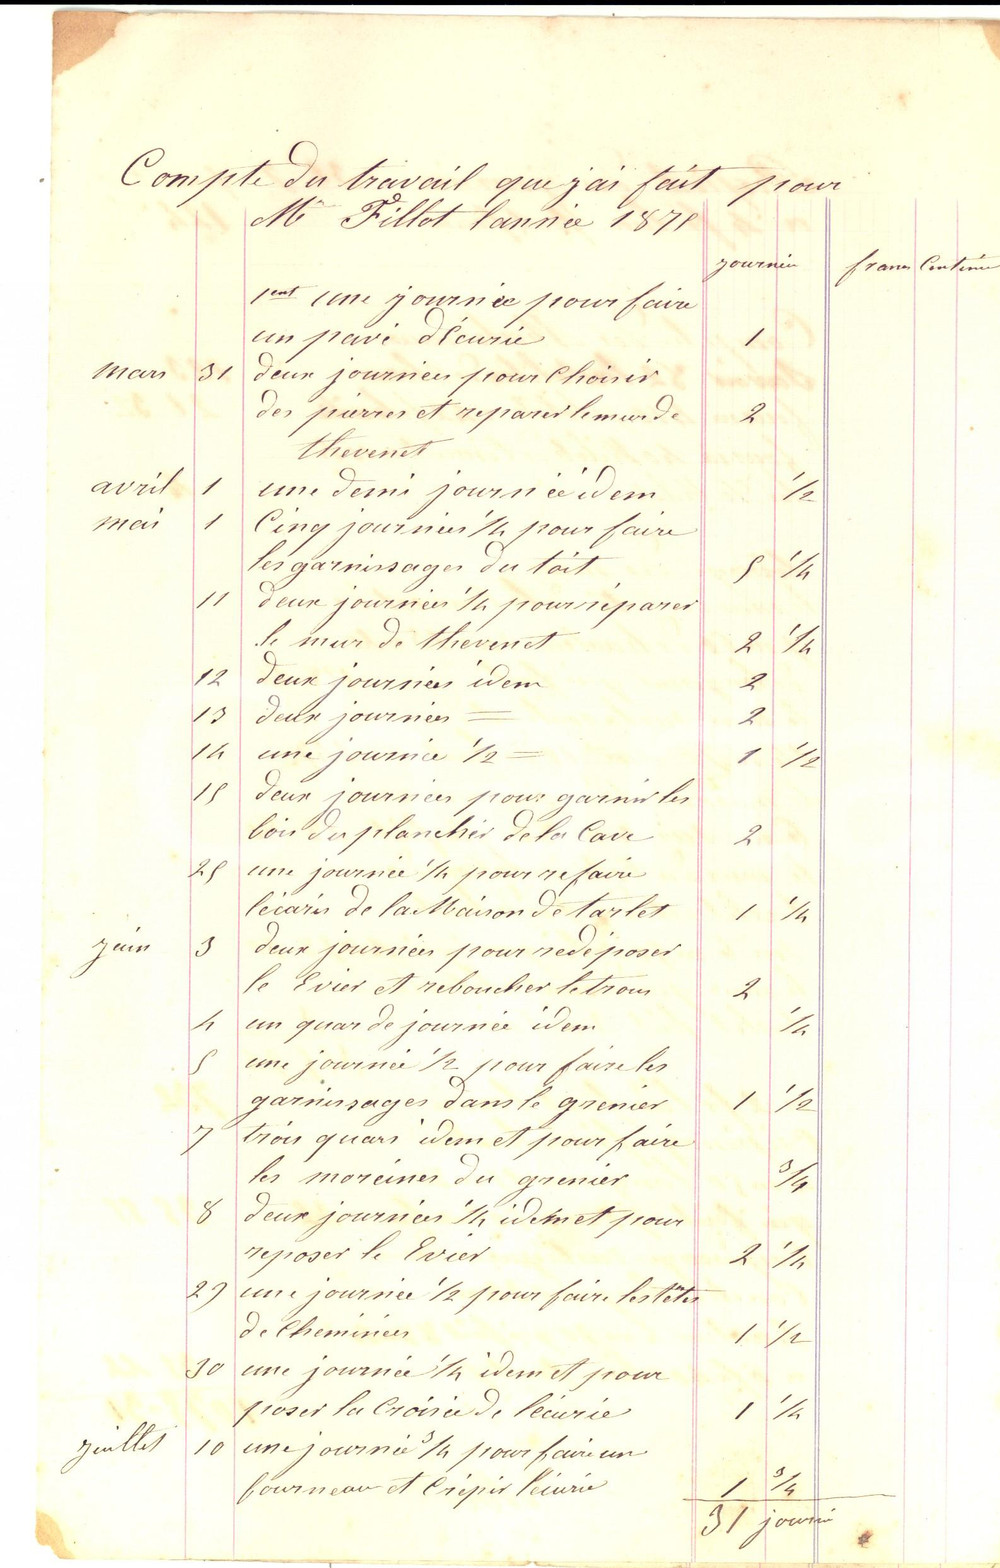 Compte du travail que j'ai fait pour
Mr Fillot l'année 1875
journée francs Centimes
1ent une journée pour faire
un pavé d'Écurie 1
mars 31 deux journées pour Choisir
des pierres et reparer le mur de 2
thevenet
avril 1 une demi journée idem 1/2
mai 1 Cinq journées 1/4 pour faire
les garnissages du toit 5 1/4
11 deux journées 1/4 pour réparer
le mur de thevenet 2 1/4
12 deux journées idem 2
13 deux journées = 2
14 une journée 1/2 = 1 1/2
15 deux journées pour garnir les
bois du plancher de la Cave 2
25 une journée 1/4 pour refaire
de la Maison de tarlet 1 1/4
juin 3 deux journées pour redéposer
le Evier et reboucher le trou 2
4 un quar de journée idem 1/4
5 une journée 1/2 pour faire les
garnissages dans le grenier 1 1/2
7 trois quars idem et pour faire
les du grenier 3/4
8 deux journées 1/4 idem et pour
reposer le Evier 2 1/4
29 une journée 1/2 pour faire les têtes
de Cheminées 1 1/2
30 une journée 1/4 idem et pour
poser la Croisée de l'écurie 1 1/4
juillet 10 une journée 3/4 pour faire un
fourneau et Crépir l'écurie 1 3/4
31 journé